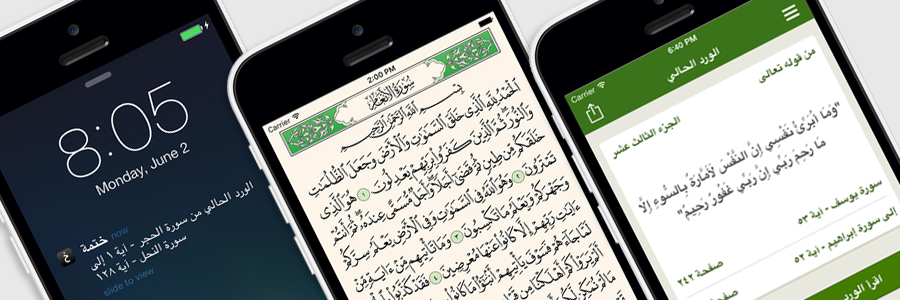 8:05
Monday, June 2
ختمة now
الورد الحالي من سورة الحجر - آية ١ إلى
سورة النحل - آية ١٢٨
slide to view
Carrier 2:00 PM
سُورَةُ الأَنْعَامِ
بِسْمِ ٱللَّهِ ٱلرَّحْمَٰنِ ٱلرَّحِيمِ
ٱلْحَمْدُ لِلَّهِ ٱلَّذِى خَلَقَ ٱلسَّمَٰوَٰتِ وَٱلْأَرْضَ وَجَعَلَ ٱلظُّلُمَٰتِ
وَٱلنُّورَ ثُمَّ ٱلَّذِينَ كَفَرُوا۟ بِرَبِّهِمْ يَعْدِلُونَ ١ هُوَ ٱلَّذِى
خَلَقَكُم مِّن طِينٍ ثُمَّ قَضَىٰٓ أَجَلًا وَأَجَلٌ مُّسَمًّى عِندَهُۥ ثُمَّ أَنتُمْ
تَمْتَرُونَ ٢ وَهُوَ ٱللَّهُ فِى ٱلسَّمَٰوَٰتِ وَفِى ٱلْأَرْضِ يَعْلَمُ سِرَّكُمْ
وَجَهْرَكُمْ وَيَعْلَمُ مَا تَكْسِبُونَ ٣ وَمَا تَأْتِيهِم مِّنْ ءَايَةٍ مِّنْ
ءَايَٰتِ رَبِّهِمْ إِلَّا كَانُوا۟ عَنْهَا مُعْرِضِينَ ٤ فَقَدْ كَذَّبُوا۟
لَمَّا جَآءَهُمْ فَسَوْفَ يَأْتِيهِمْ أَنۢبَٰٓؤُا۟ مَا كَانُوا۟
Carrier 6:40 PM
الورد الحالي
من قوله تعالى
الجزء الثالث عشر
"وَمَا أُبَرِّئُ نَفْسِي إِنَّ النَّفْسَ لَأَمَّارَةٌ بِالسُّوءِ إِلَّا
مَا رَحِمَ رَبِّي إِنَّ رَبِّي غَفُورٌ رَحِيمٌ"
سورة يوسف - آية ٥٣
صفحة ٢٤٢
إلى سورة إبراهيم - آية ٥٢
صفحة
اقرأ الورد